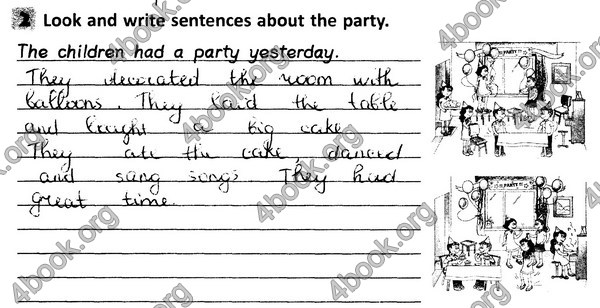 2 Look and write sentences about the party.
The children had a party yesterday.
They decorated the room with
balloons. They laid the table
and bought a big cake.
They ate the cake, danced
and sang songs. They had
great time.
PARTY
PARTY
4book.org